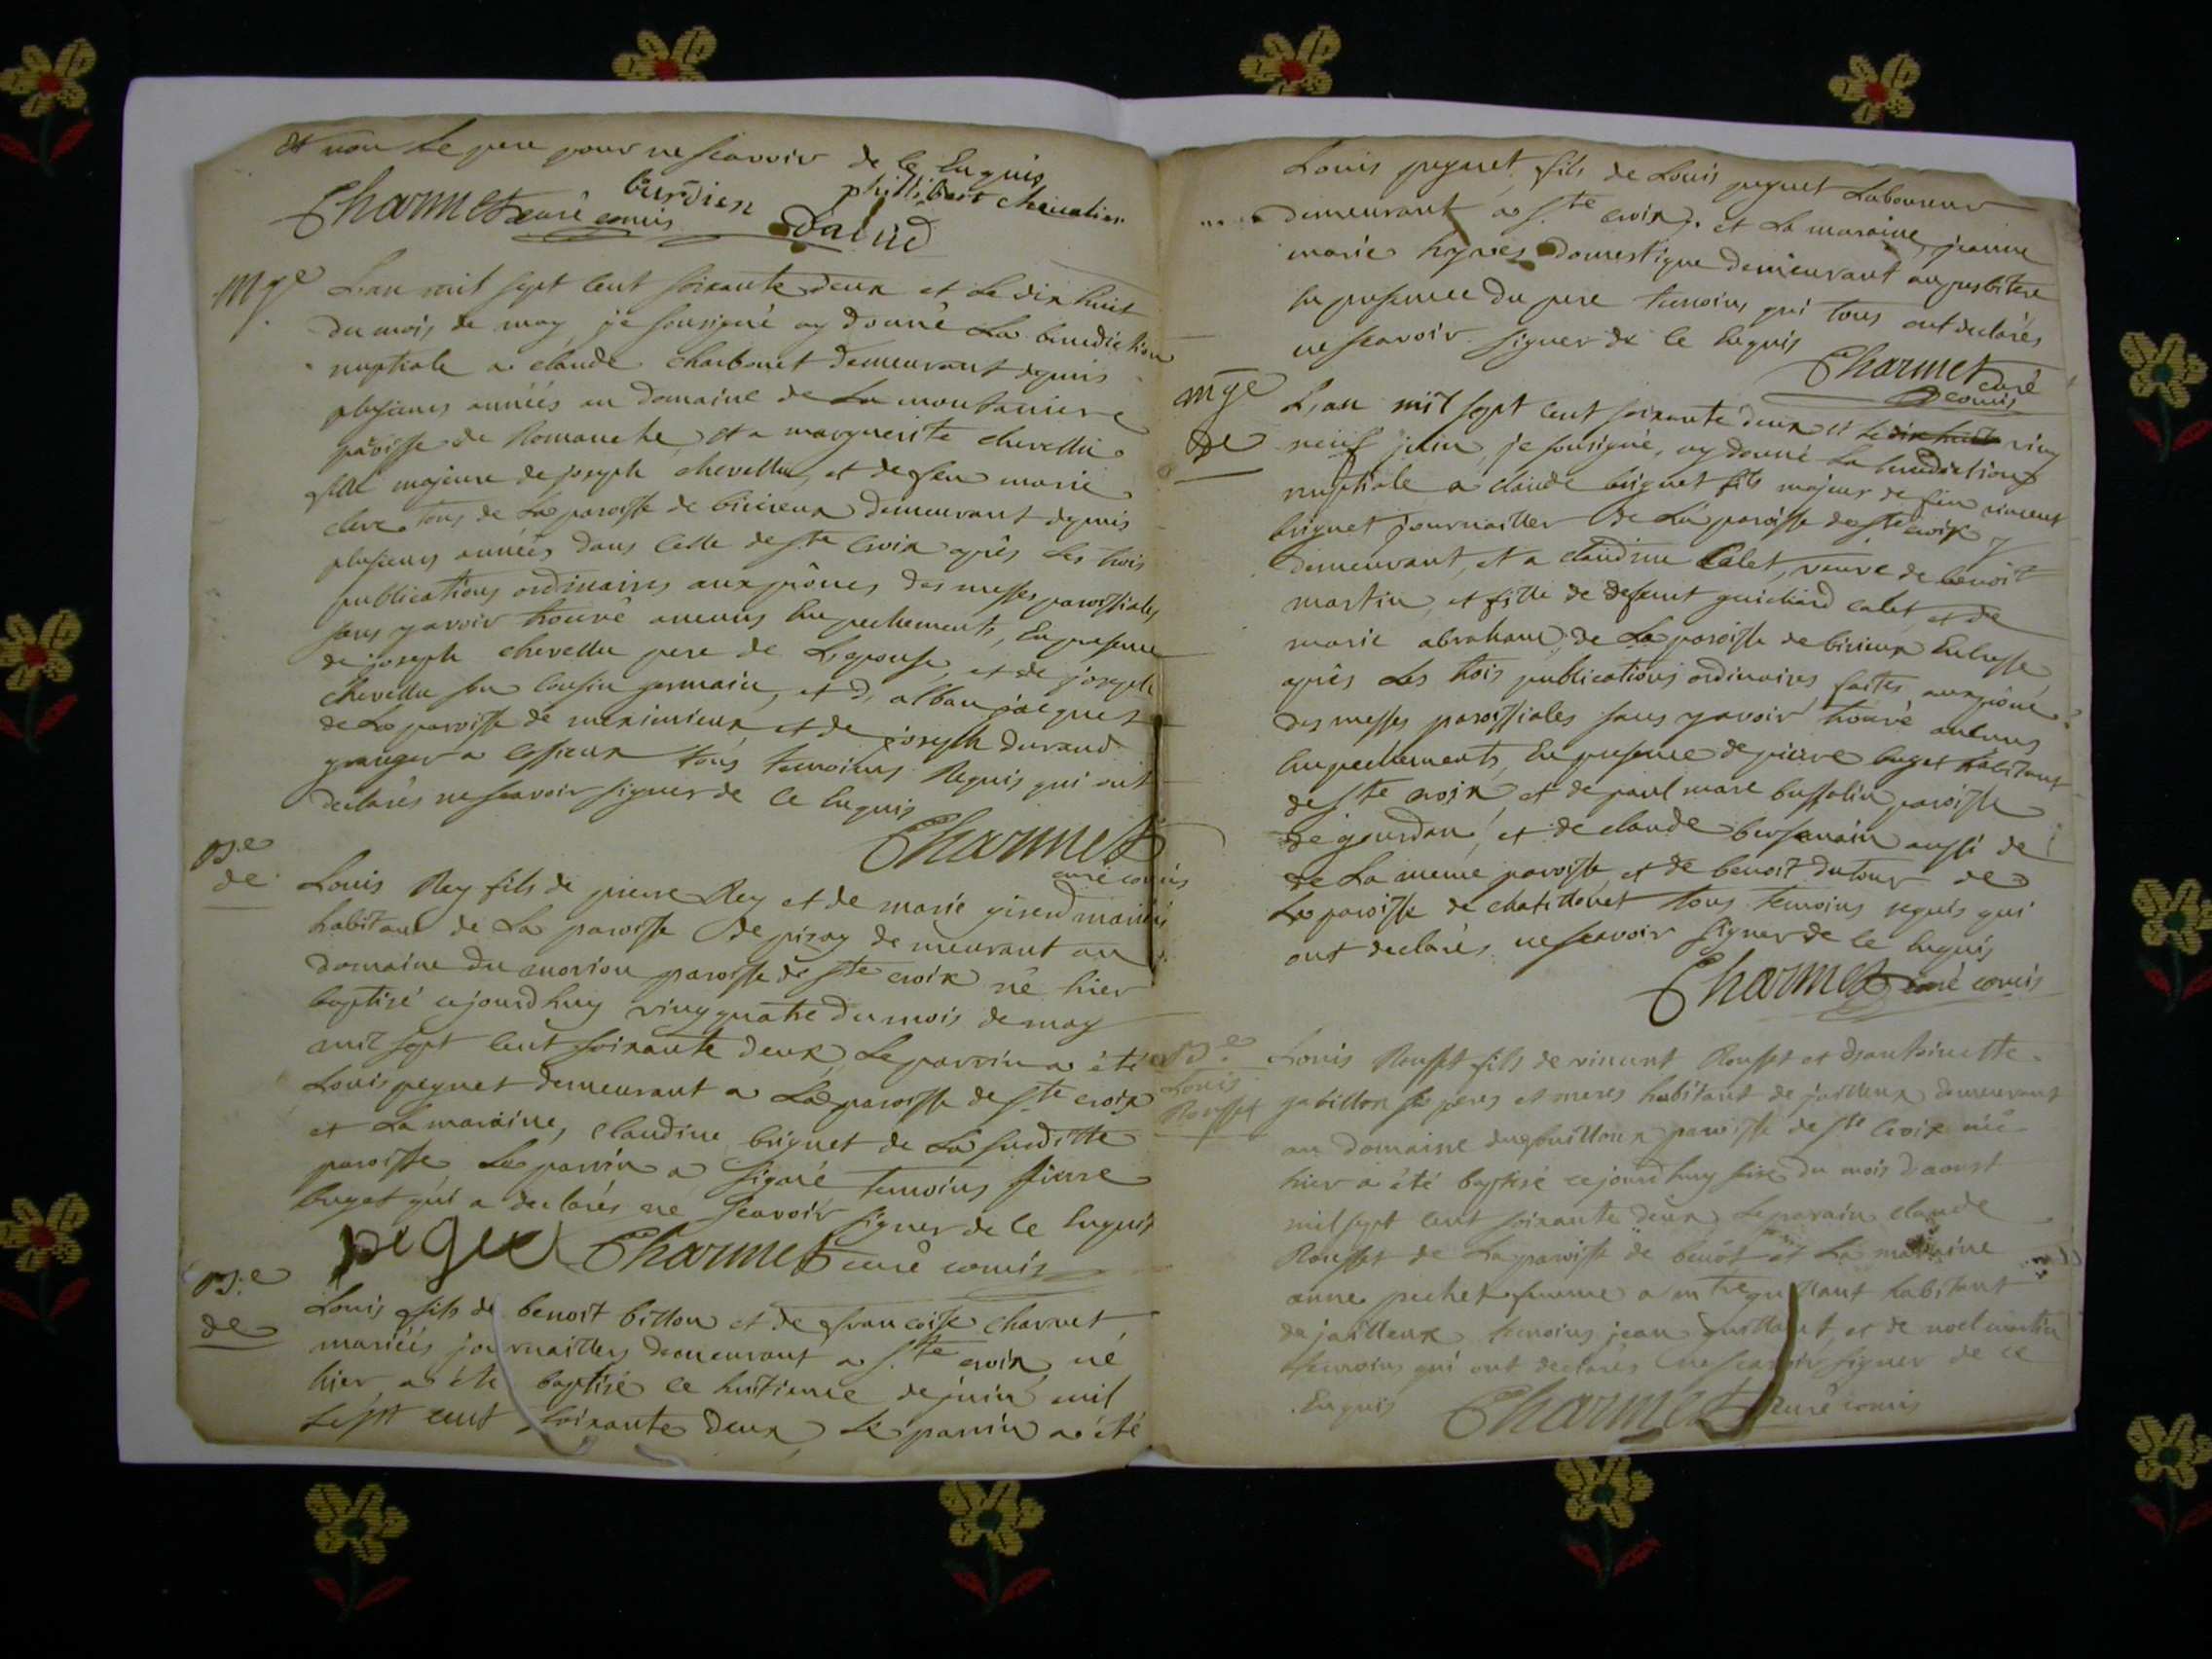 et non le pere pour ne scavoir de ce Enquis
Charmet curé comis burdien phillibert chevalier
david
mge L'an mil sept cent soixante deux et le dix huit
du mois de may je sousigné ay donné la benediction
nuptiale a claude charbonet demeurant depuis
plusieurs années au domaine de la montaniere
paroisse de Romaneche et a marguerite chevellu
fille majeure de joseph chevellu, et de feu marie
clere tous de la paroisse de birieux demeurant depuis
plusieurs années dans celle de ste croix après les trois
publications ordinaires aux prônes des messes paroissiales
sans y avoir trouvé aucuns Empechements, En presence
de joseph chevellu pere de L'epouse, et de joseph
chevellu son cousin germain, et d, alban jacquet
de la paroisse de meximieux et de joseph durand
granger a tous temoins Requis qui ont
declarés ne scavoir signer de ce Enquis
Charmet
curé comis
B.e
de Louis Rey fils de pierre Rey et de marie girerd mariés
habitans de la paroisse de pizay demeurant au
domaine du morion paroisse de ste croix né hier
baptisé cejourdhuy vingquatre du mois de may
mil sept cent soixante deux, Le parrin a été
Louis peguet demeurant a La paroisse de ste croix
et La maraine, claudine briguet de La suditte
paroisse Le parrin a signé temoins pierre
buget qui a declarés ne scavoir signer de ce Enquis
peguet Charmet curé comis
B.e
de Louis fils de benoit billon et de francoise charvet
mariés journaillers demeurant a ste croix né
hier a été baptisé ce huitieme de juin mil
sept cent soixante deux, Le parrin a été
Louis peguet, fils de Louis peguet Laboureur
demeurant a ste croix, et La maraine jeanne
marie domestique demeurant au presbitere
En presence du pere temoins qui tous ont declarés
ne scavoir signer de ce Enquis
Charmet curé
comis
mge
de L,an mil sept cent soixante deux et le dix huit ving
neuf juin, je sousigné, ay donné la benediction
nuptiale a claude briguet fils majeur de feu vincent
briguet journailler de La paroisse de ste croix y
demeurant, et a claudine Calet, veuve de benoit
martin, et fille de defunt guichard calet et de
marie abraham, de La paroisse de birieux En bresse
après Les trois publications ordinaires faites aux prône
des messes paroissiales sans y avoir trouvé aucuns
Empechements, En presence de pierre buget habitant
de ste croix, et de paul marc buffalin paroisse
de gourdan, et de claude aussi de
de La meme paroisse et de benoit dutour de
La paroisse de chatillonet tous temoins requis qui
ont declarés ne scavoir signer de ce Enquis
Charmet curé comis
B.e
Louis
Rousset
Louis Rousset fils de vincent Rousset et dantoinette
gabillon ses peres et meres habitant de jailleux demeurant
au domaine paroisse de ste croix né
hier a été baptisé cejourdhuy seise du mois daoust
mil sept cent soixante deux Le parain claude
Rousset de La paroisse de et La maraine
anne pechet femme a habitant
de jailleux temoins jean et de noel martin
temoins qui ont declarés ne scavoir signer de ce
Enquis Charmet curé comis